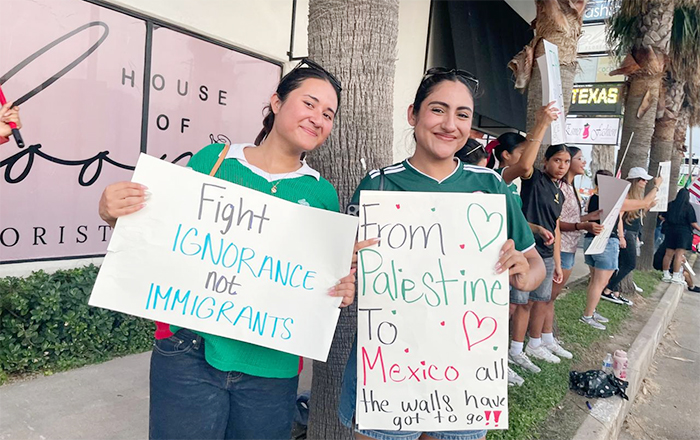 HOUSE
OF
ORIST
Fight
IGNORANCE
not
IMMIGRANTS
From
Palestine
To
Mexico all
the walls have
got to go!!
TEXAS
Fashion